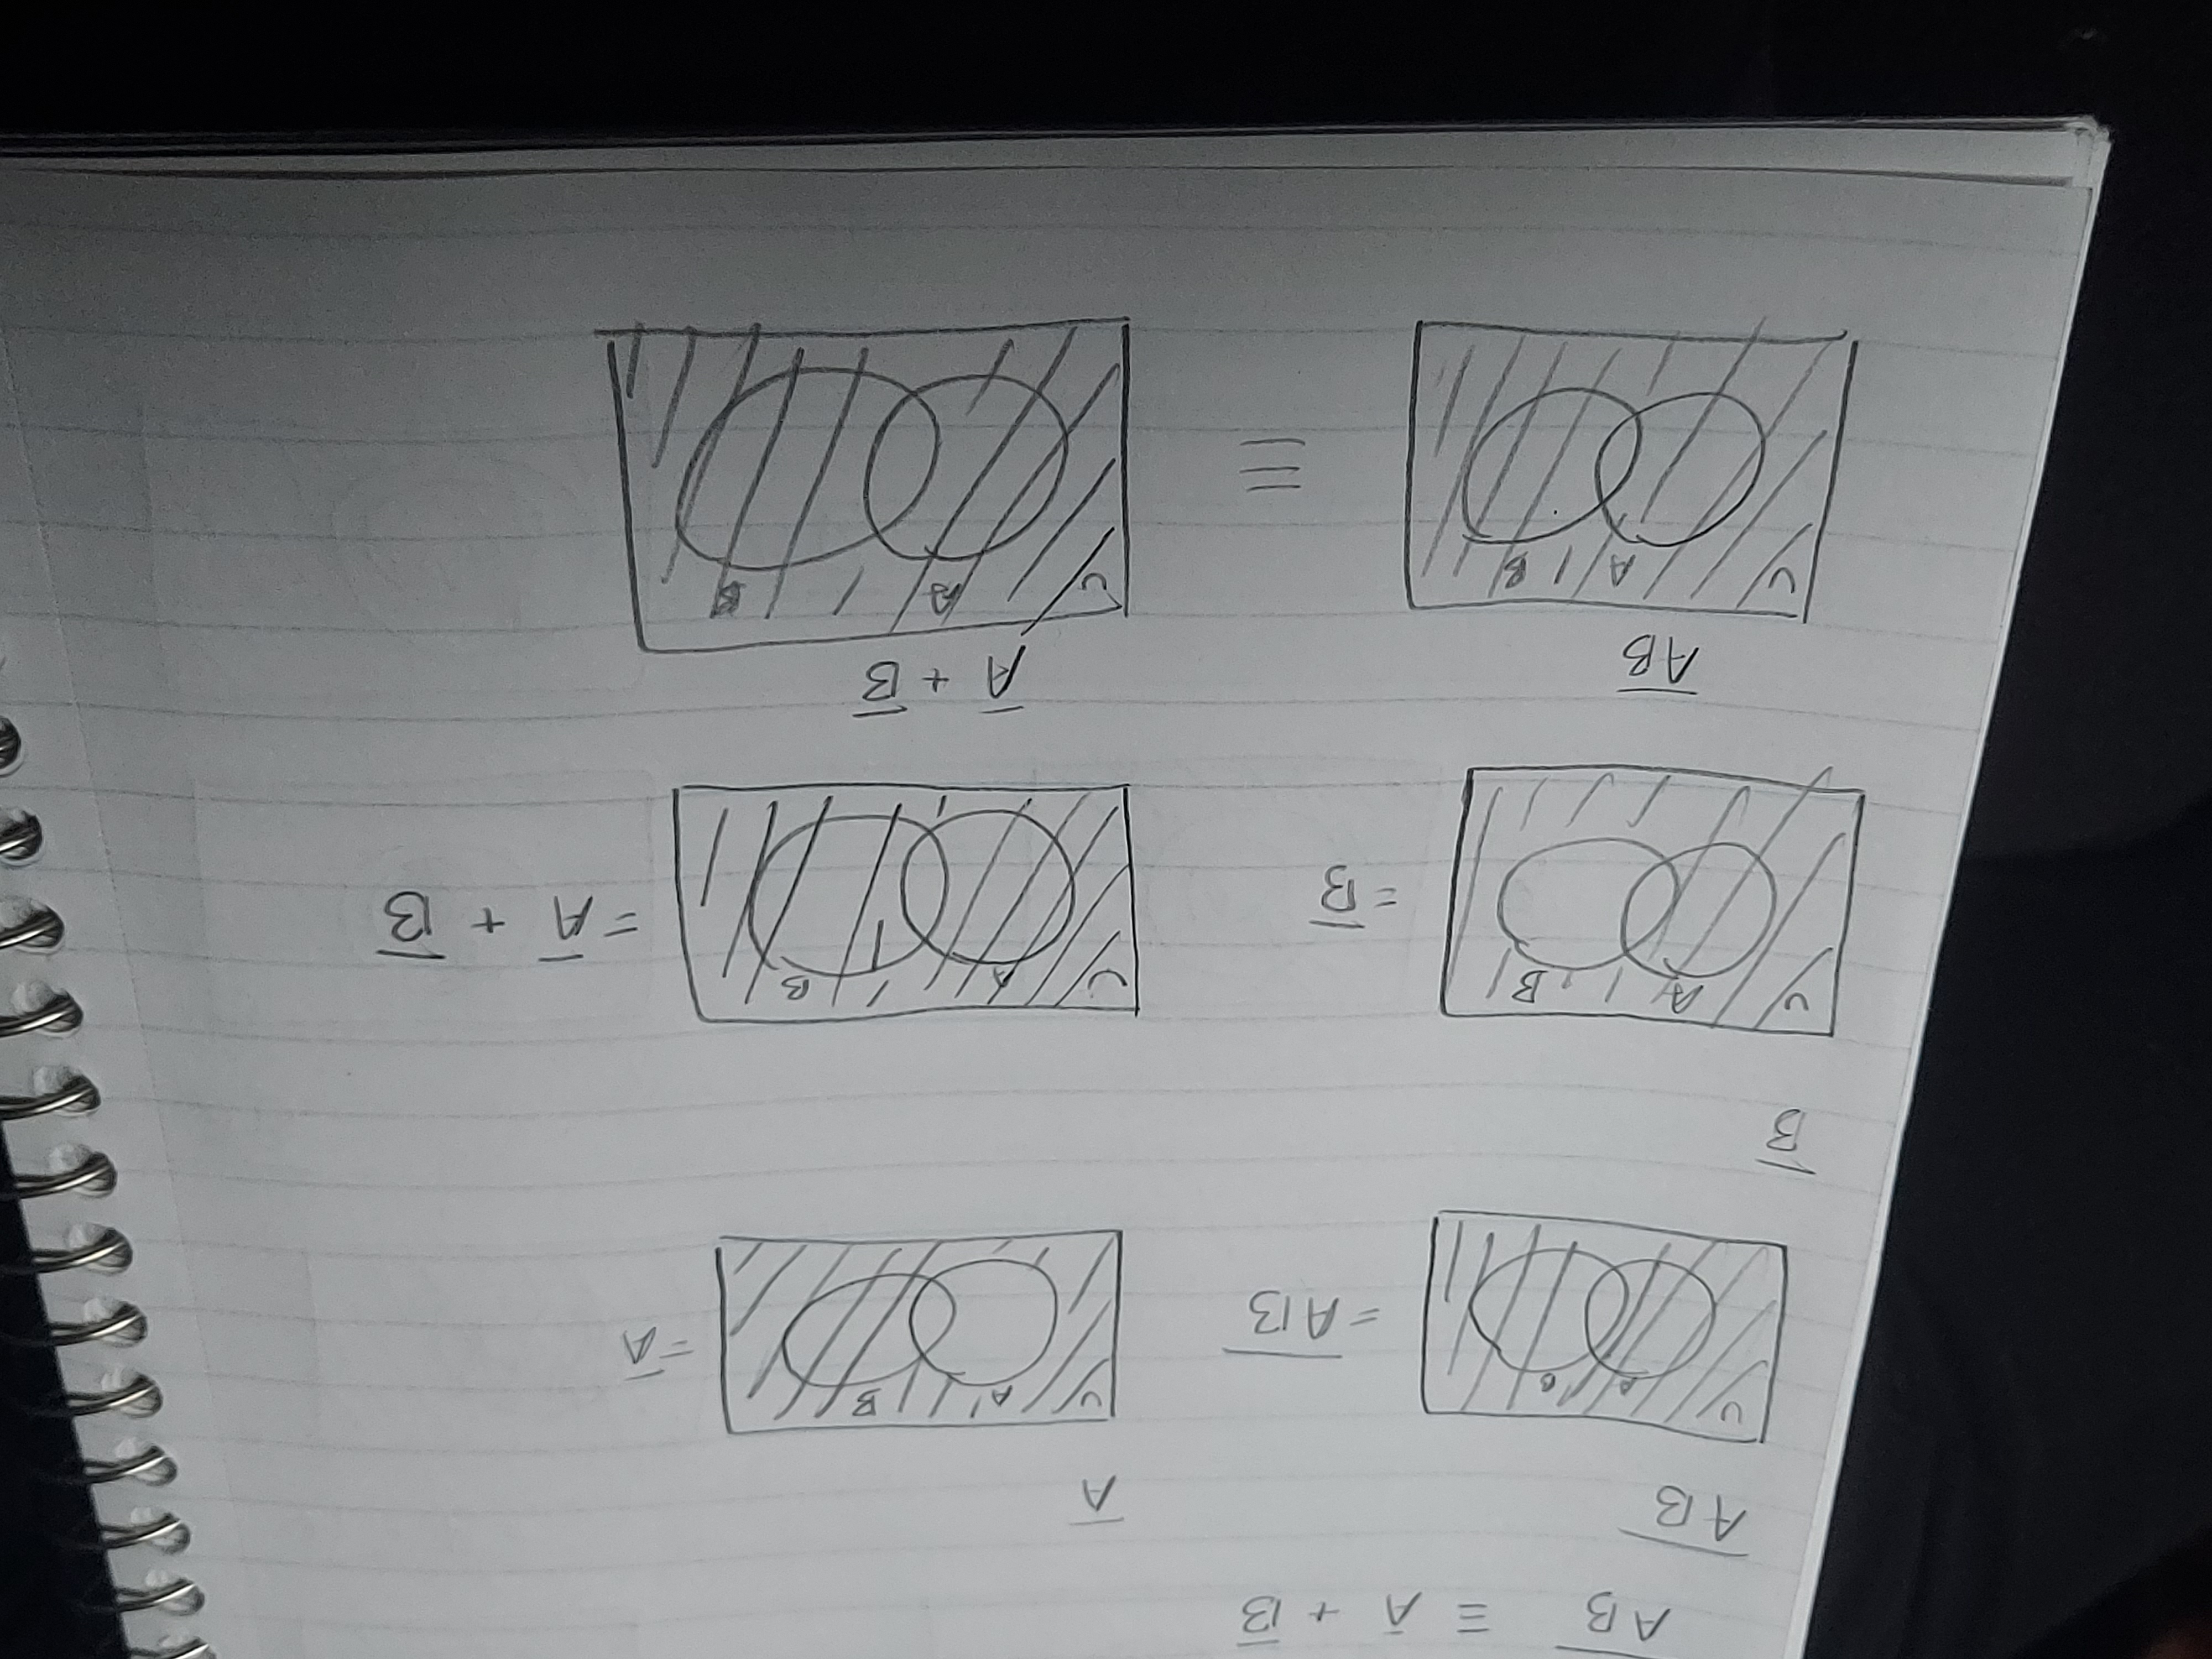 A̅B̅ ≡ A̅ + B̅
A̅B̅
A̅
U A B
= A̅B̅
U A B
= A̅
B̅
U A B
= B̅
U A B
= A̅ + B̅
A̅B̅
A̅ + B̅
U A B
≡
U A B